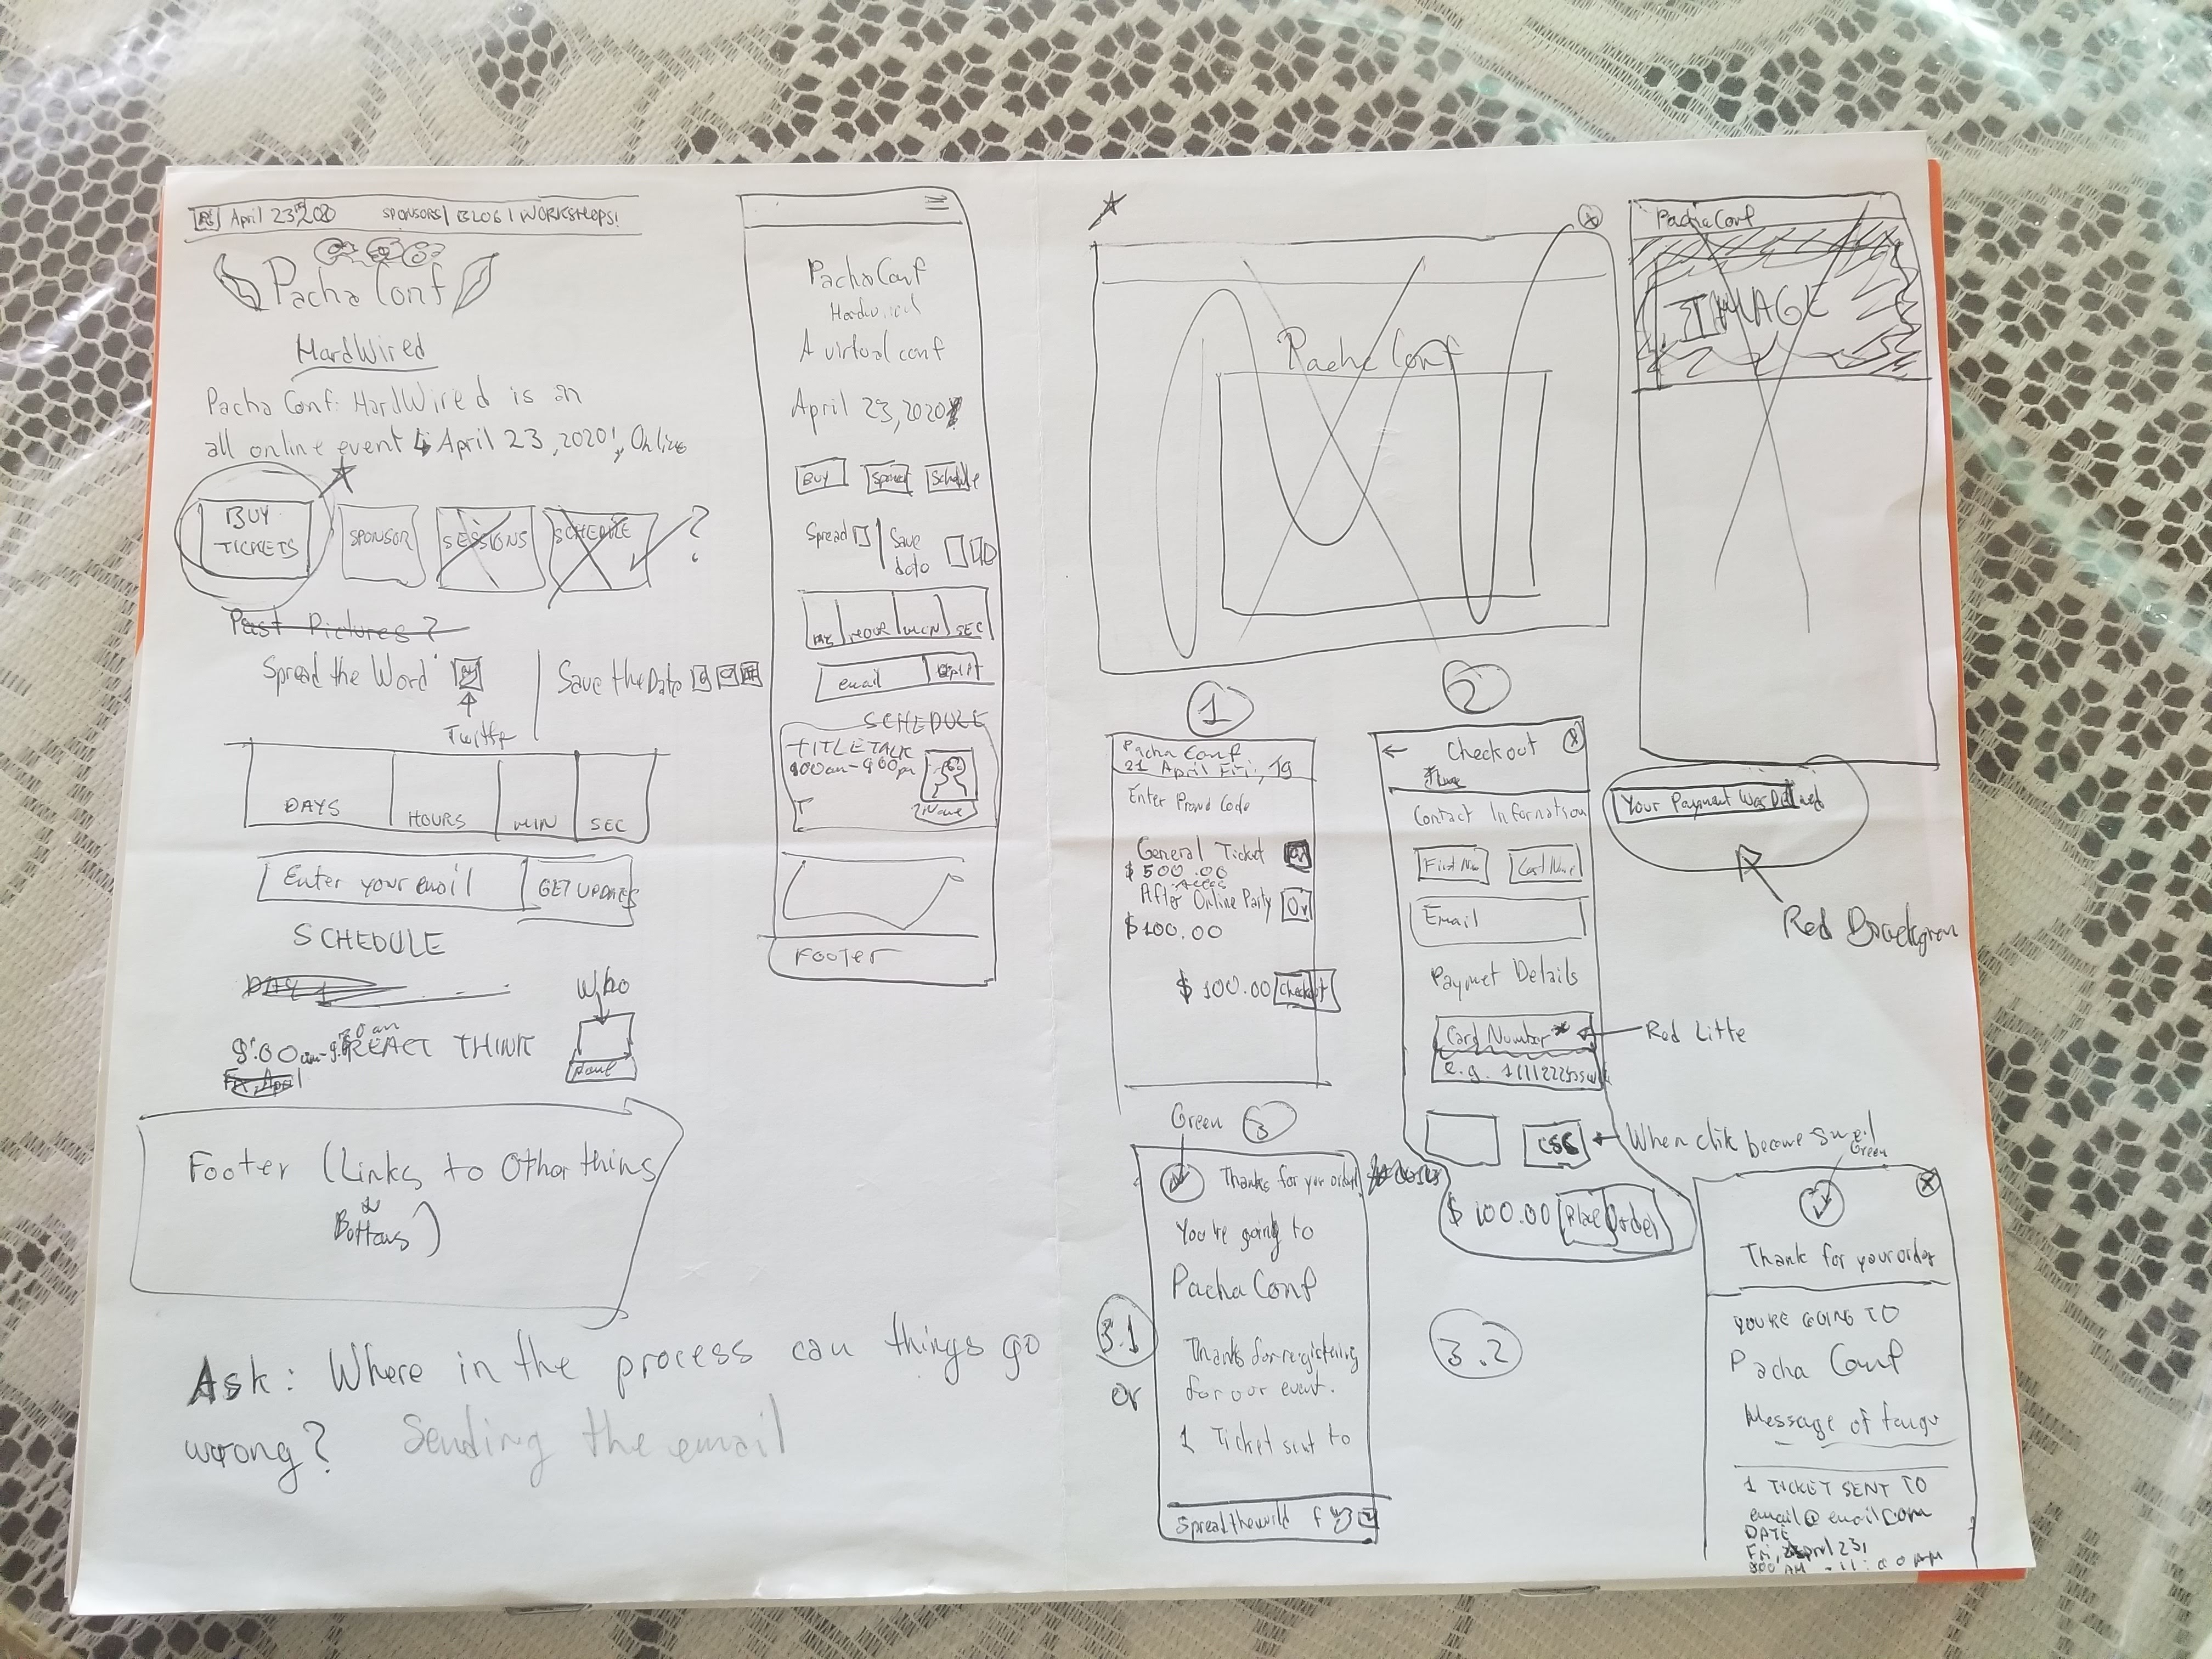 April 23, 2020
SPONSORS | BLOG | WORKSHOPS!
Pacha Conf
HardWired
Pacha Conf: HardWired is an
all online event April 23, 2020!, Online
BUY
TICKETS
SPONSOR
SESSIONS
SCHEDULE
?
Past Pictures?
Spread the Word
Save the Date
Twitter
DAYS
HOURS
MIN
SEC
Enter your email
GET UPDATES
SCHEDULE
DAY 1
Who
REACT THINK
Name
Fri, April
Footer (Links to Other things
&
Bottons)
Ask: Where in the process can things go
wrong? Sending the email
PachaConf
Hardwired
A virtual conf
April 23, 2020
BUY
Sponsor
Schedule
Spread
Save
date
HOUR
MIN
SEC
email
SCHEDULE
TITLE TALK
Name
FOOTER
Pacha Conf
PachaConf
IMAGE
1
Pacha Conf
21 April Fri, 19
Enter Promo Code
General Ticket
$500.00
Access
After Online Party
$100.00
$100.00
Checkout
2
Checkout
Contact Information
First Name
Last Name
Email
Paymet Details
Card Number *
Red Litte
CSC
When clik become small
$100.00
Place Order
Your Payment Was Declined
Red Brackgron
Green
3
Thanks for your order!
You're going to
PachaConf
Thanks for registering
for our event.
1 Ticket sent to
3.1
or
3.2
Green
Thank for your order
YOU'RE GOING TO
Pacha Conf
1 TICKET SENT TO
email@email.com
DATE
Fri, April 23,